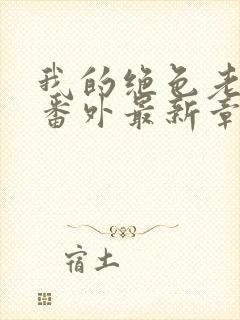 我的绝色老
番外最新章
宿土